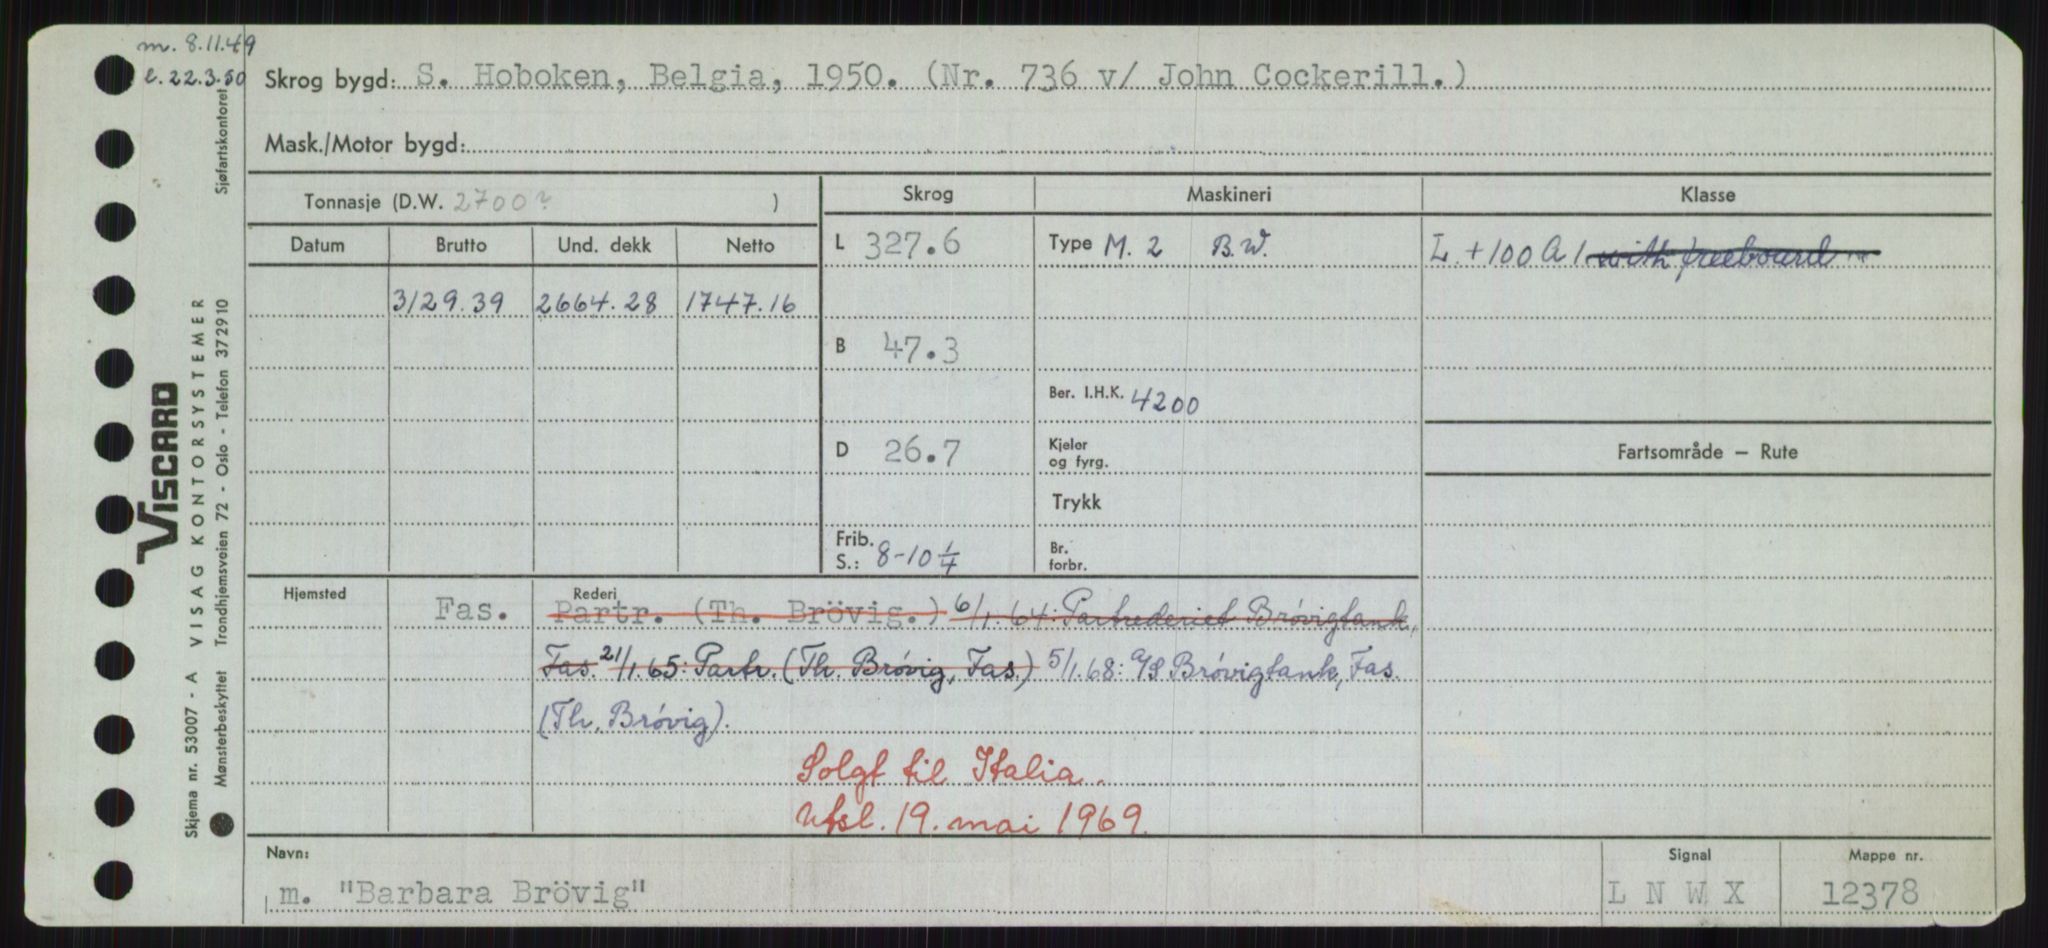 m. 8.11.49
l. 22.3.50
Skrog bygd: S. Hoboken, Belgia, 1950. (Nr. 736 v/ John Cockerill.)
Mask./Motor bygd:
Tonnasje (D.W. 2700? )
Skrog
Maskineri
Klasse
Datum Brutto Und. dekk Netto
L 327.6
Type M. 2 B.W.
L + 100 A 1 with freeboard
3129.39 2664.28 1747.16
B 47.3
Ber. I.H.K. 4200
D 26.7
Kjeler
og fyrg.
Fartsområde – Rute
Trykk
Frib.
S.: 8-10 1/4
Br.
forbr.
Hjemsted
Rederi
Fas. Partr. (Th. Brövig.) 6/1.64: Partrederiet Brövigtank,
Fas. 21/1.65: Partr. (Th. Brövig, Fas.) 5/1.68: A/S Brövigtank, Fas.
(Th. Brövig).
Solgt til Italia.
Utsl. 19. mai 1969.
Navn:
m. "Barbara Brövig"
Signal
L N W X
Mappe nr.
12378
VISCARD
Skjema nr. 53007 - A VISAG KONTORSYSTEMER
Mønsterbeskyttet Trondhjemsveien 72 - Oslo - Telefon 372910 Sjøfartskontoret